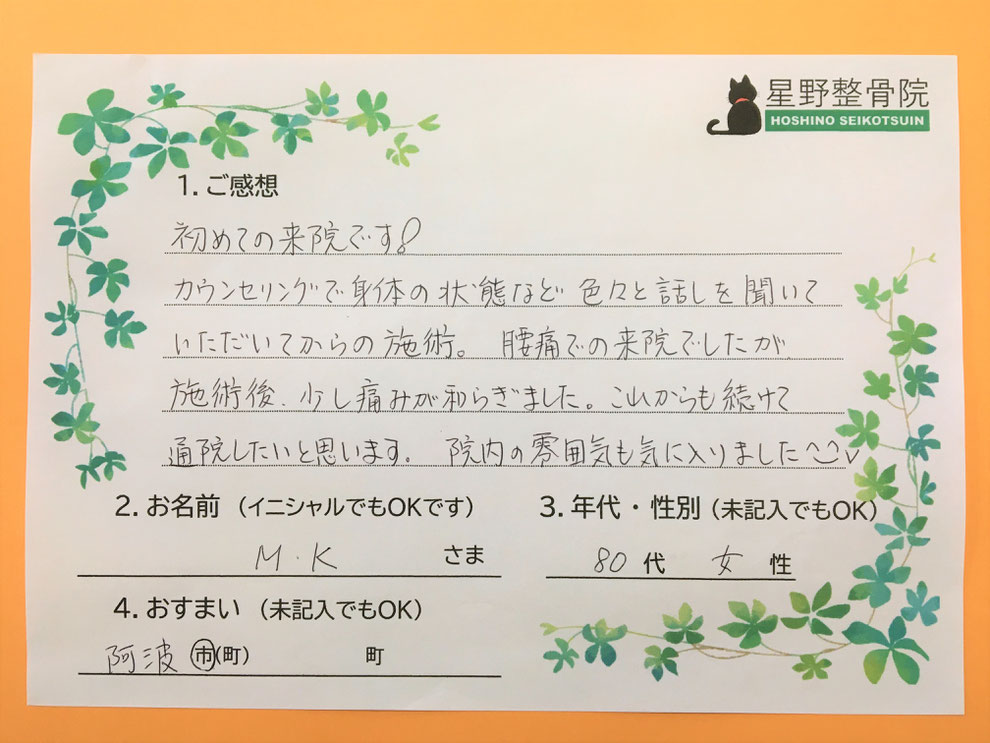 星野整骨院
HOSHINO SEIKOTSUIN
1. ご感想
初めての来院です!
カウンセリングで身体の状態など色々と話しを聞いて
いただいてからの施術。 腰痛での来院でしたが、
施術後、少し痛みが和らぎました。これからも続けて
通院したいと思います。 院内の雰囲気も気に入りました
2. お名前 (イニシャルでもOKです)
M・K さま
3. 年代・性別 (未記入でもOK)
80代 女 性
4. おすまい (未記入でもOK)
阿波 市(町) 町